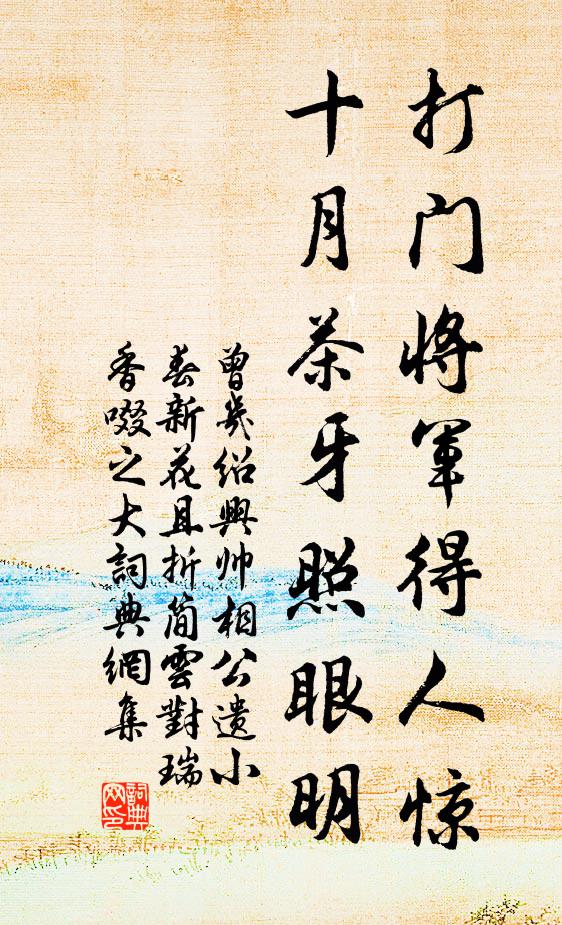 打门将军得人惊
十月茶牙照眼明
曾几绍興帅相公遗小
春新花且折简雲對瑞
香啜之大詞典網集
詞典
网印